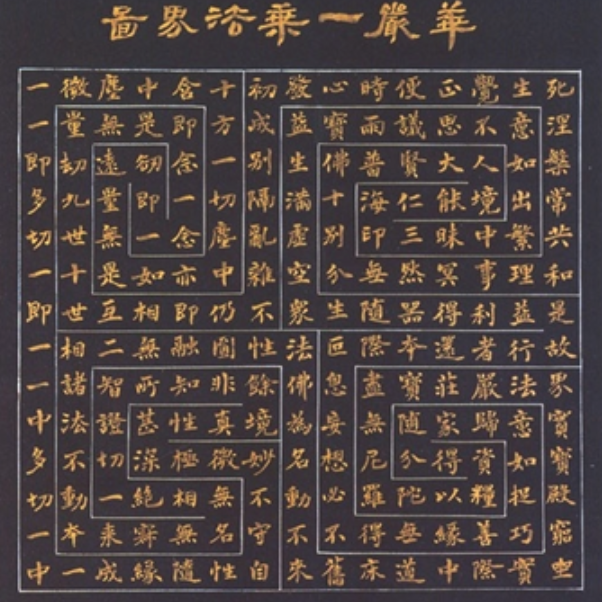 華嚴一乘法界圖
一微塵中含十初發心時便正覺生死
一量無是即方成益寶雨議思不意涅
即劫遠劫念一別生佛普賢大人如槃
多九量即一切隔滿十海仁能境出常
切世無一念塵亂虛別印三昧中繁共
一十是如亦中雜空分無然冥事理和
即世互相即仍不衆生隨器得利益是
一相二無融圓性法叵際本還者行故
一諸智所知非餘佛息盡寶莊嚴法界
中法證甚性真境為妄無隨家歸意實
多不切深極微妙名想尼分得資如寶
切動一絶相無不動必羅陀以糧捉殿
一本來寂無名守不不得無緣善巧窮
中一成緣隨性自來舊床道中際實坐